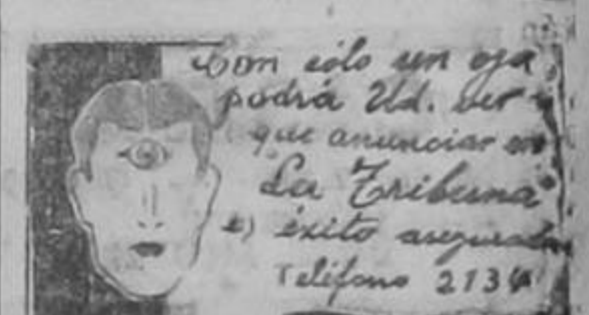 Con sólo un ojo
podrá Ud. ver
que anunciar en
La Tribuna
es éxito asegurado
Teléfono 2134